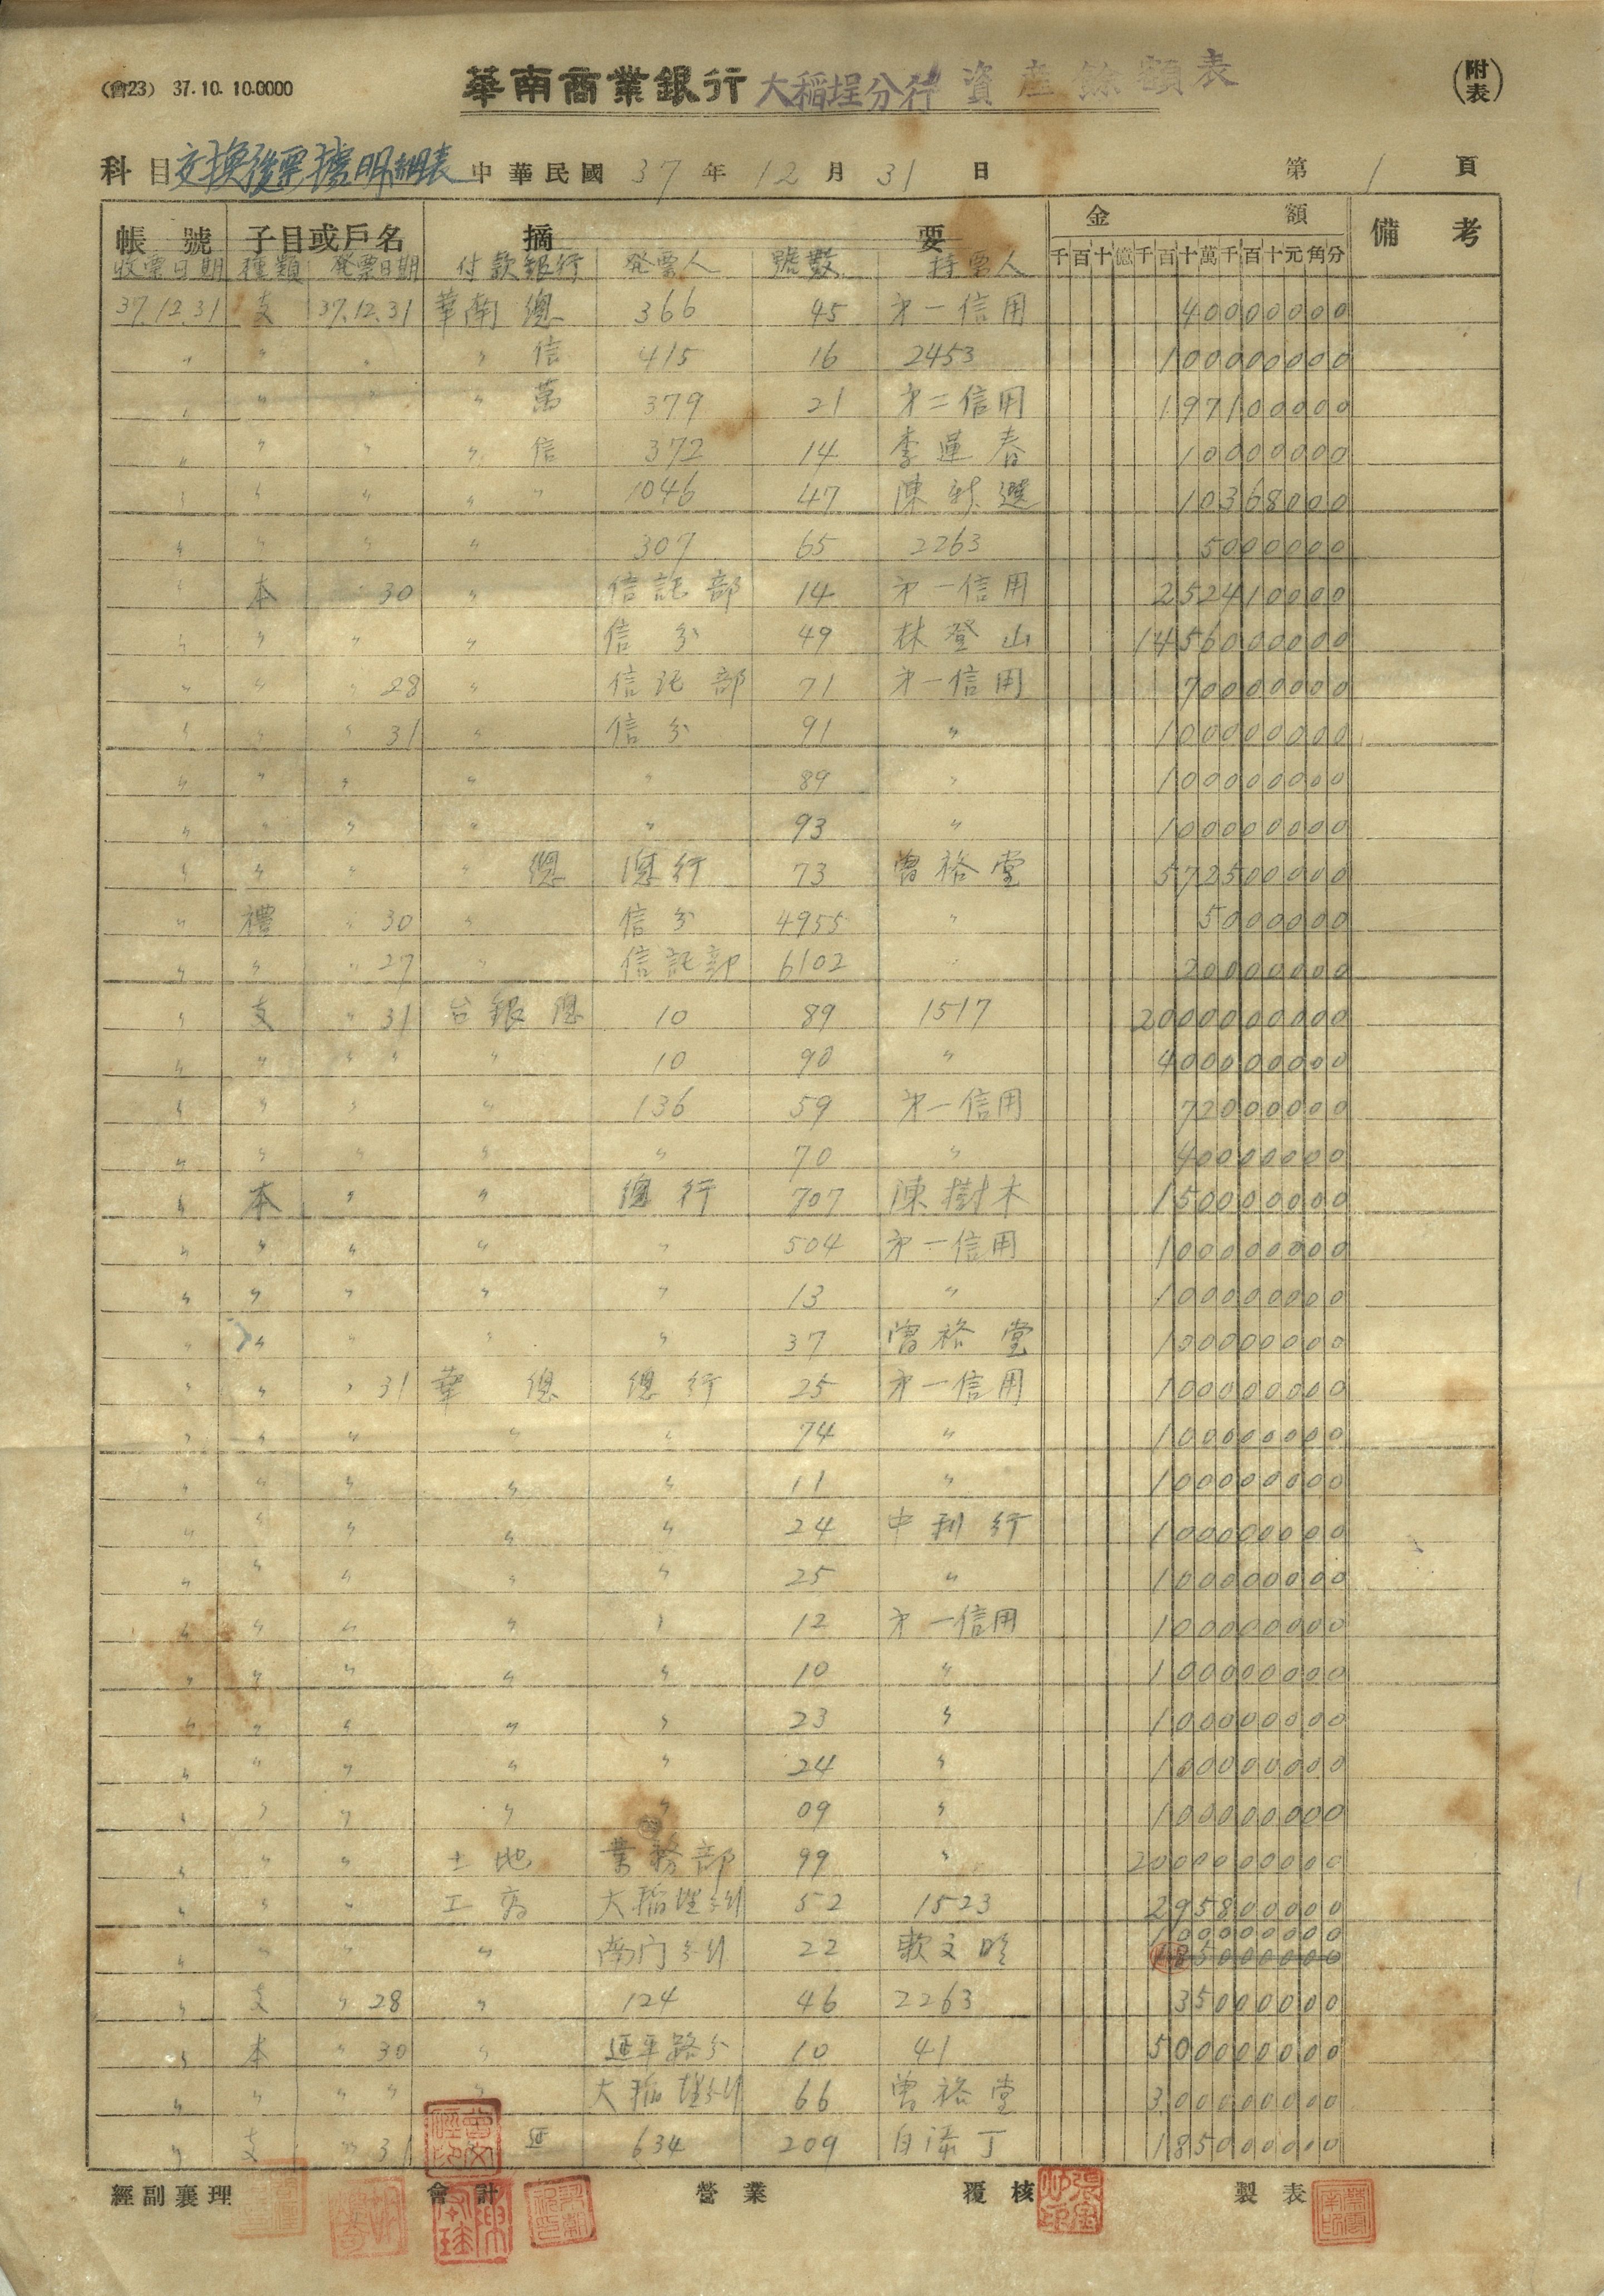 (會23) 37.10.10.0000
華南商業銀行 大稻埕分行 資產餘額表
(附表)
科目 交換後票據明細表 中華民國 37 年 12 月 31 日 第 1 頁
帳號 子目或戶名 摘要 金額 備考
收票日期 種類 發票日期 付款銀行 發票人 號數 持票人 千百十億千百十萬千百十元角分
37.12.31 支 37.12.31 華南 總 366 45 才一信用 40000000
〃 〃 〃 〃 信 415 16 2453 100000000
〃 〃 〃 〃 萬 379 21 才二信用 197100000
〃 〃 〃 〃 信 372 14 李運春 10000000
〃 〃 〃 〃 〃 1046 47 陳 選 10368000
〃 〃 〃 〃 307 65 2263 5000000
〃 本 〃30 〃 信託部 14 才一信用 252410000
〃 〃 〃 〃 信分 49 林登山 1456000000
〃 〃 〃28 〃 信託部 71 才一信用 70000000
〃 〃 〃31 〃 信分 91 〃 100000000
〃 〃 〃 〃 〃 89 〃 100000000
〃 〃 〃 〃 〃 93 〃 100000000
〃 〃 〃 〃 總 總行 73 曾裕堂 572500000
〃 禮 〃30 〃 信分 4955 〃 5000000
〃 〃 〃27 〃 信託部 6102 〃 20000000
〃 支 〃31 台銀總 10 89 1517 2000000000
〃 〃 〃 〃 〃 10 90 〃 400000000
〃 〃 〃 〃 136 59 才一信用 72000000
〃 〃 〃 〃 〃 70 〃 40000000
〃 本 〃 〃 總行 707 陳樹木 150000000
〃 〃 〃 〃 〃 504 才一信用 100000000
〃 〃 〃 〃 〃 13 〃 100000000
〃 〃 〃 〃 〃 37 曾裕堂 100000000
〃 〃 〃31 華 總 總行 25 才一信用 100000000
〃 〃 〃 〃 〃 74 〃 100000000
〃 〃 〃 〃 〃 11 〃 100000000
〃 〃 〃 〃 〃 24 中利行 100000000
〃 〃 〃 〃 〃 25 〃 100000000
〃 〃 〃 〃 〃 12 才一信用 100000000
〃 〃 〃 〃 〃 10 〃 100000000
〃 〃 〃 〃 〃 23 〃 100000000
〃 〃 〃 〃 〃 24 〃 100000000
〃 〃 〃 〃 〃 09 〃 100000000
〃 〃 〃 土地 業務部 99 〃 2000000000
〃 〃 〃 工商 大稻埕分行 52 1523 295800000
100000000
〃 〃 〃 〃 南门分行 22 185000000
〃 支 〃28 〃 124 46 2263 35000000
〃 本 〃30 〃 延平路分 10 41 500000000
〃 〃 〃 〃 〃 大稻埕分行 66 曾裕堂 300000000
〃 支 〃31 延 634 209 白添丁 185000000
經副襄理 會計 營業 覆核 製表